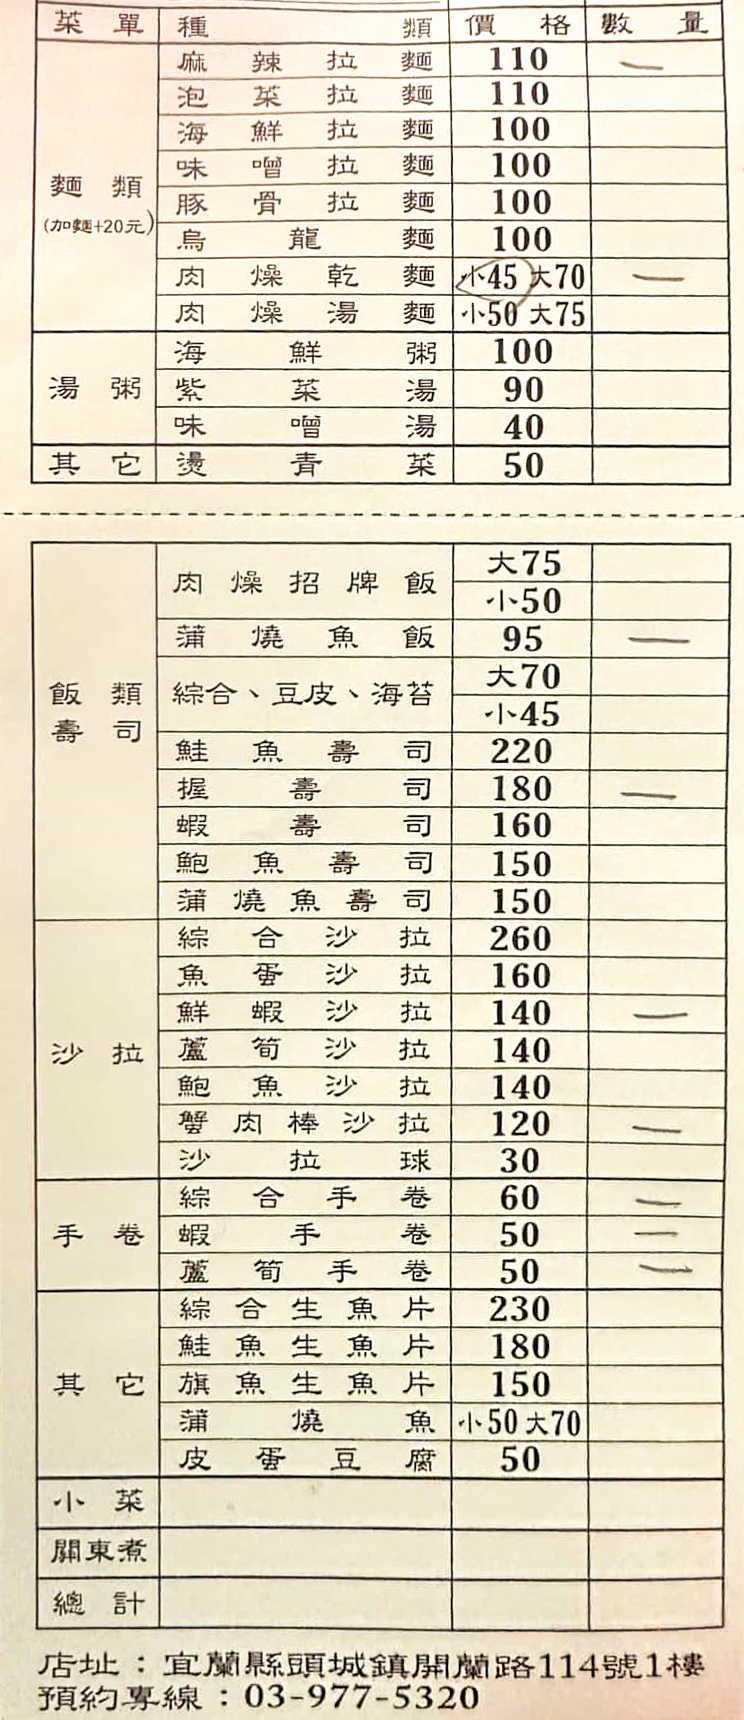 菜單 種類 價格 數量
麵類 (加麵+20元)
麻辣拉麵 110 一
泡菜拉麵 110
海鮮拉麵 100
味噌拉麵 100
豚骨拉麵 100
烏龍麵 100
肉燥乾麵 小45 大70 一
肉燥湯麵 小50 大75
湯粥
海鮮粥 100
紫菜湯 90
味噌湯 40
其它 燙青菜 50
飯類 壽司
肉燥招牌飯 大75 小50
蒲燒魚飯 95 一
綜合、豆皮、海苔 大70 小45
鮭魚壽司 220
握壽司 180 一
蝦壽司 160
鮑魚壽司 150
蒲燒魚壽司 150
沙拉
綜合沙拉 260
魚蛋沙拉 160
鮮蝦沙拉 140 一
蘆筍沙拉 140
鮑魚沙拉 140
蟹肉棒沙拉 120 一
沙拉球 30
手卷
綜合手卷 60 一
蝦手卷 50 二
蘆筍手卷 50 一
其它
綜合生魚片 230
鮭魚生魚片 180
旗魚生魚片 150
蒲燒魚 小50 大70
皮蛋豆腐 50
小菜
關東煮
總計
店址：宜蘭縣頭城鎮開蘭路114號1樓
預約專線：03-977-5320